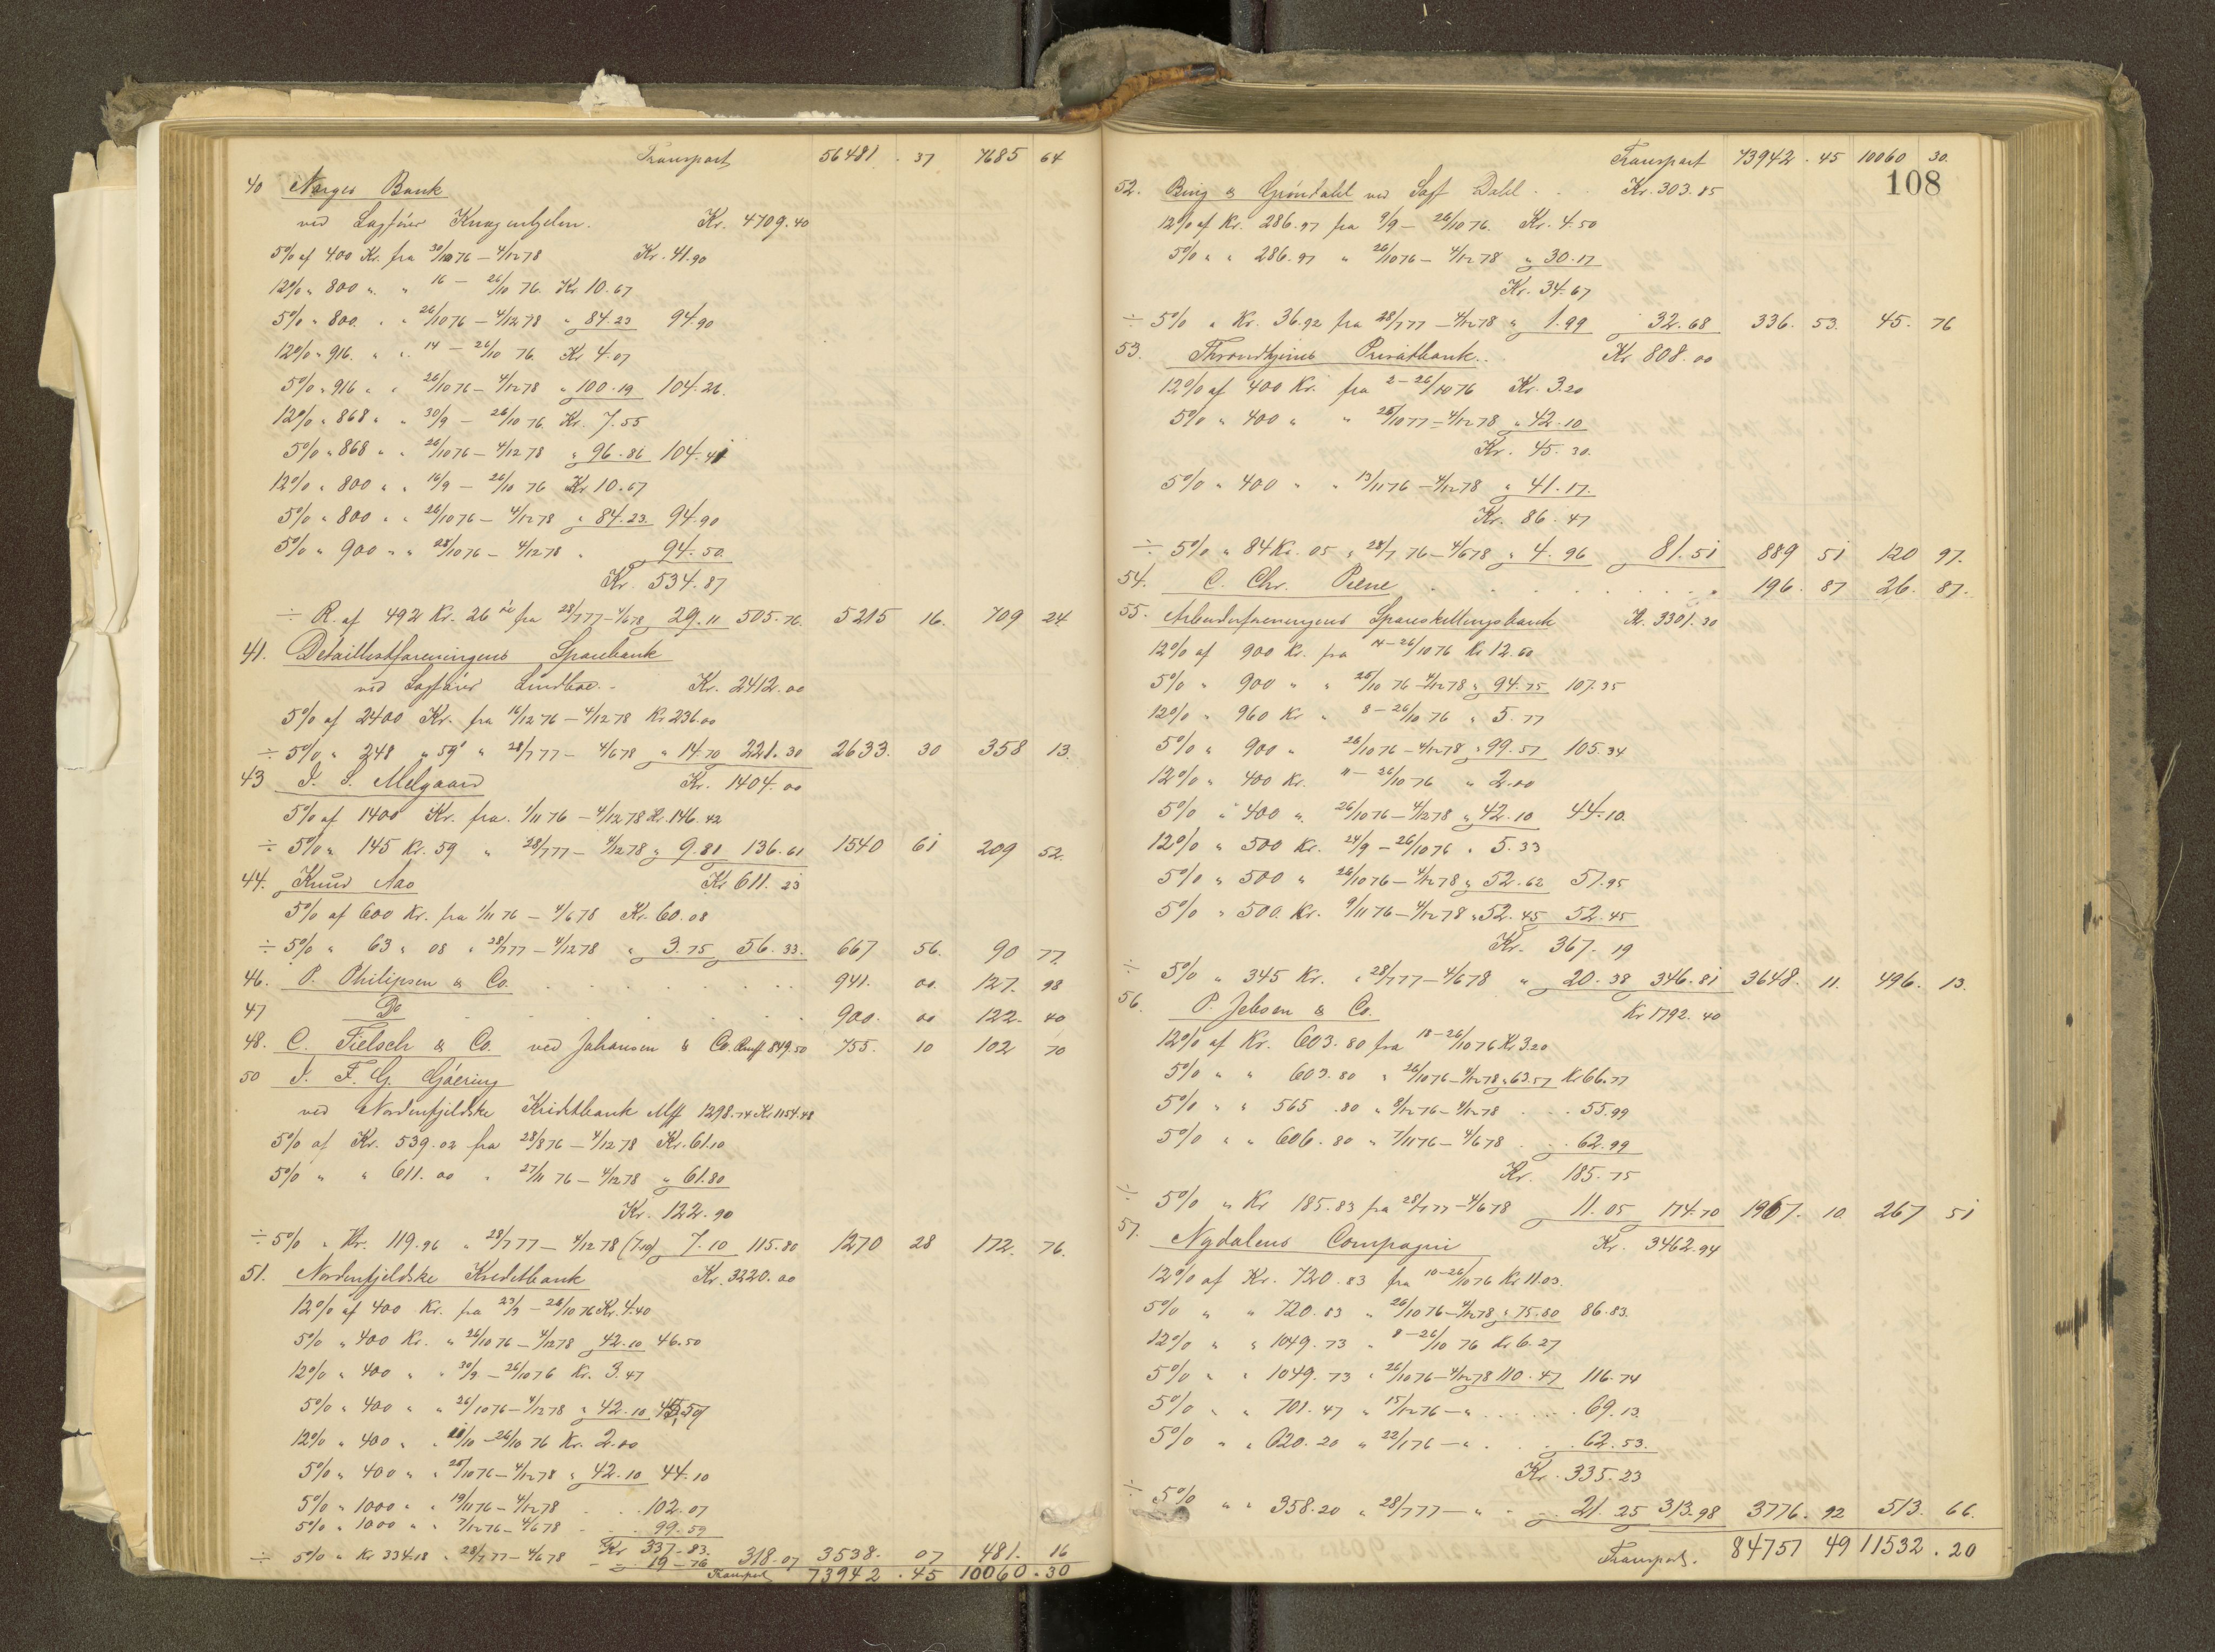 Transport 56481 . 37 7685 64
40 Norges Bank
ved Sagfører Knagenhjelm. Kr. 4709.40
5% af 400 Kr. fra 30/10 76 – 4/12 78 Kr. 41.90
12% " 800 " " 16 – 26/10 76. Kr 10.67
5% " 800. " " 26/10 76 – 4/12 78 " 84.23 94.90
12% " 916. " " 14 – 26/10 76 Kr 4.07
5% " 916 " " 26/10 76 – 4/12 78 " 100.19 104.26.
12% " 868 " " 30/9 – 26/10 76 Kr. 7.55
5% " 868 " " 26/10 76 – 4/12 78 " 96.86 104.41
12% " 800 " " 16/9 – 26/10 76 Kr 10.67
5% " 800 " " 26/10 76 – 4/12 78 " 84.23. 94.90
5% " 900 " " 28/10 76 – 4/12 78 " 94.50.
Kr. 534.87
÷ R. af 492 Kr. 26 øre fra 28/7 77 – 4/6 78 29.11 505.76. 5215 16. 709 24.
41. Detaillistforeningens Sparebank
ved Sagfører Lindboe. - Kr. 2412.00
5% af 2400 Kr. fra 16/12 76 – 4/12 78 Kr 236.00
÷ 5% " 248 " 59 " 28/7 77 – 4/6 78 " 14.70 221.30 2633. 30 358 13.
43 I. S. Melgaard Kr. 1404.00
5% af 1400 Kr. fra. 1/11 76 – 4/12 78 Kr. 146.42
÷ 5% " 145 Kr. 59 " 28/7 77 – 4/12 78 " 9.81 136.61 1540 61 209 52.
44. Knud Aas Kr 611.23
5% af 600 Kr. fra 1/11 76 – 4/6 78 Kr. 60.08
÷ 5% " 63 " 08 " 28/7 77 – 4/12 78 " 3.75 56.33. 667 56. 90 77.
46. P. Philipsen & Co. 941. 00. 127. 98
47 Do 900. 00 122. 40
48. C. Tielsch & Co. ved Johansen & Co. 849.50 755. 10 102 70
50 I. F. G. Göering
ved Nordenfjeldske Kriditbank Mff 1298.74 Kr. 1154.48
5% af Kr. 539.02 fra 28/8 76 – 4/12 78 Kr. 61.10
5% " " 611.00 " 27/11 76 – 4/12 78 " 61.80
Kr. 122.90
÷ 5% " Kr. 119.96 " 28/7 77 – 4/12 78 (7.10) 7.10 115.80 1270 28 172. 76.
51. Nordenfjeldske Kreditbank Kr. 3220.00
12% af 400 Kr. fra 23/9 – 26/10 76 Kr. 4.40
5% " 400 Kr. " 26/10 76 – 4/12 78 42.10 46.50
12% " 400 " " 30/9 – 26/10 76 Kr. 3.47
5% " 400 " " 26/10 76 – 4/12 78 " 42.10 45.57
12% " 400 " " 11/10 – 26/10 76 Kr. 2.00
5% " 400 " " 26/10 76 – 4/12 78 " 42.10 44.10
5% " 1000 " " 19/11 76 – 4/12 78 . . 102.07
5% " 1000 " " 7/12 76 – 4/6 78 - . . 99.59
Kr 337.83.
÷ 5% " Kr 334.18 " 28/7 77 – 4/6 78 – – 19–76 318.07 3538. 07 481. 16
Transport 73942 . 45 10060 . 30
Transport 73942 . 45 10060 30.
108
52. Bing & Gröndahl ved Sagf Dahl . . Kr. 303.85
12% af Kr. 286.97 fra 9/9 – 26/10 76. Kr. 4.50
5% " " 286.97 " 26/10 76 – 4/12 78 " 30.17
Kr. 34.67
÷ 5% " Kr. 36.92 fra 28/7 77 – 4/12 78 " 1.99 32.68 336. 53. 45. 76
53. Throndhjems Privatbank. . Kr 808.00
12% af 400 Kr. fra 2 – 26/10 76 Kr. 3.20
5% " 400 " " 26/10 77 – 4/12 78 " 42.10
Kr. 45.30.
5% " 400 " " 13/11 76 – 4/12 78 " 41.17.
Kr. 86.47
÷ 5% " 84 Kr. 05 " 28/7 76 – 4/6 78 " 4.96 81.51 889 51 120 97.
54. C. Chr. Piene 196. 87 26. 87.
55. Arbeiderforeningens Spareskillingsbank Kr. 3301.30
12% af 900 Kr. fra 14 – 26/10 76 Kr 12.60
5% " 900 " " 26/10 76 – 4/12 78 " 94.75 107.35
12% " 960 Kr " 8 – 26/10 76 " 5.77
5% " 900 " 26/10 76 – 4/12 78 " 99.57 105.34
12% " 400 Kr. 11 – 26/10 76 " 2.00
5% " 400 " 26/10 76 – 4/12 78 " 42.10 44.10.
12% " 500 Kr. 24/9 – 26/10 76 " 5.33
5% " 500 " 26/10 76 – 4/12 78 " 52.62 57.95
5% " 500. Kr. 9/11 76 – 4/12 78 " 52.45 52.45
Kr. 367.19
÷ 5% " 345 Kr. " 28/7 77 – 4/6 78 " 20.38 346.81 3648. 11. 496. 13.
56. P. Jebsen & Co. Kr 1792.40
12% af Kr. 603.80 fra 18 – 26/10 76 Kr 3.20
5% " " 603.80 " 26/10 76 – 4/12 78 " 63.57 Kr 66.77
5% " " 565.80 " 8/12 76 – 4/12 78 . . 55.99
5% " " 606.80 " 7/11 76 – 4/6 78 . . 62.99
Kr. 185.75
÷ 5% " Kr 185.83 fra 28/7 77 – 4/6 78 11.05 174.70 1967. 10 267 51
57. Nydalens Compagni Kr. 3462.94
12% af Kr. 720.83 fra 10 – 26/10 76 Kr 11.03.
5% " " 720.83 " 26/10 76 – 4/12 78 " 75.80 86.83.
12% " " 1049.73 " 8 – 26/10 76 Kr 6.27
5% " " 1049.73 " 26/10 76 – 4/12 78 110.47 116.74
5% " " 701.47 " 15/12 76 – " . . . . . . 69.13.
5% " " 620.20 " 22/1 76 – " . . . 62.53.
Kr. 335.23
÷ 5% " " 358.20 " 28/7 77 – " - 21.25 313.98 3776. 92 513. 66.
Transport. 84757 49 11532 . 20